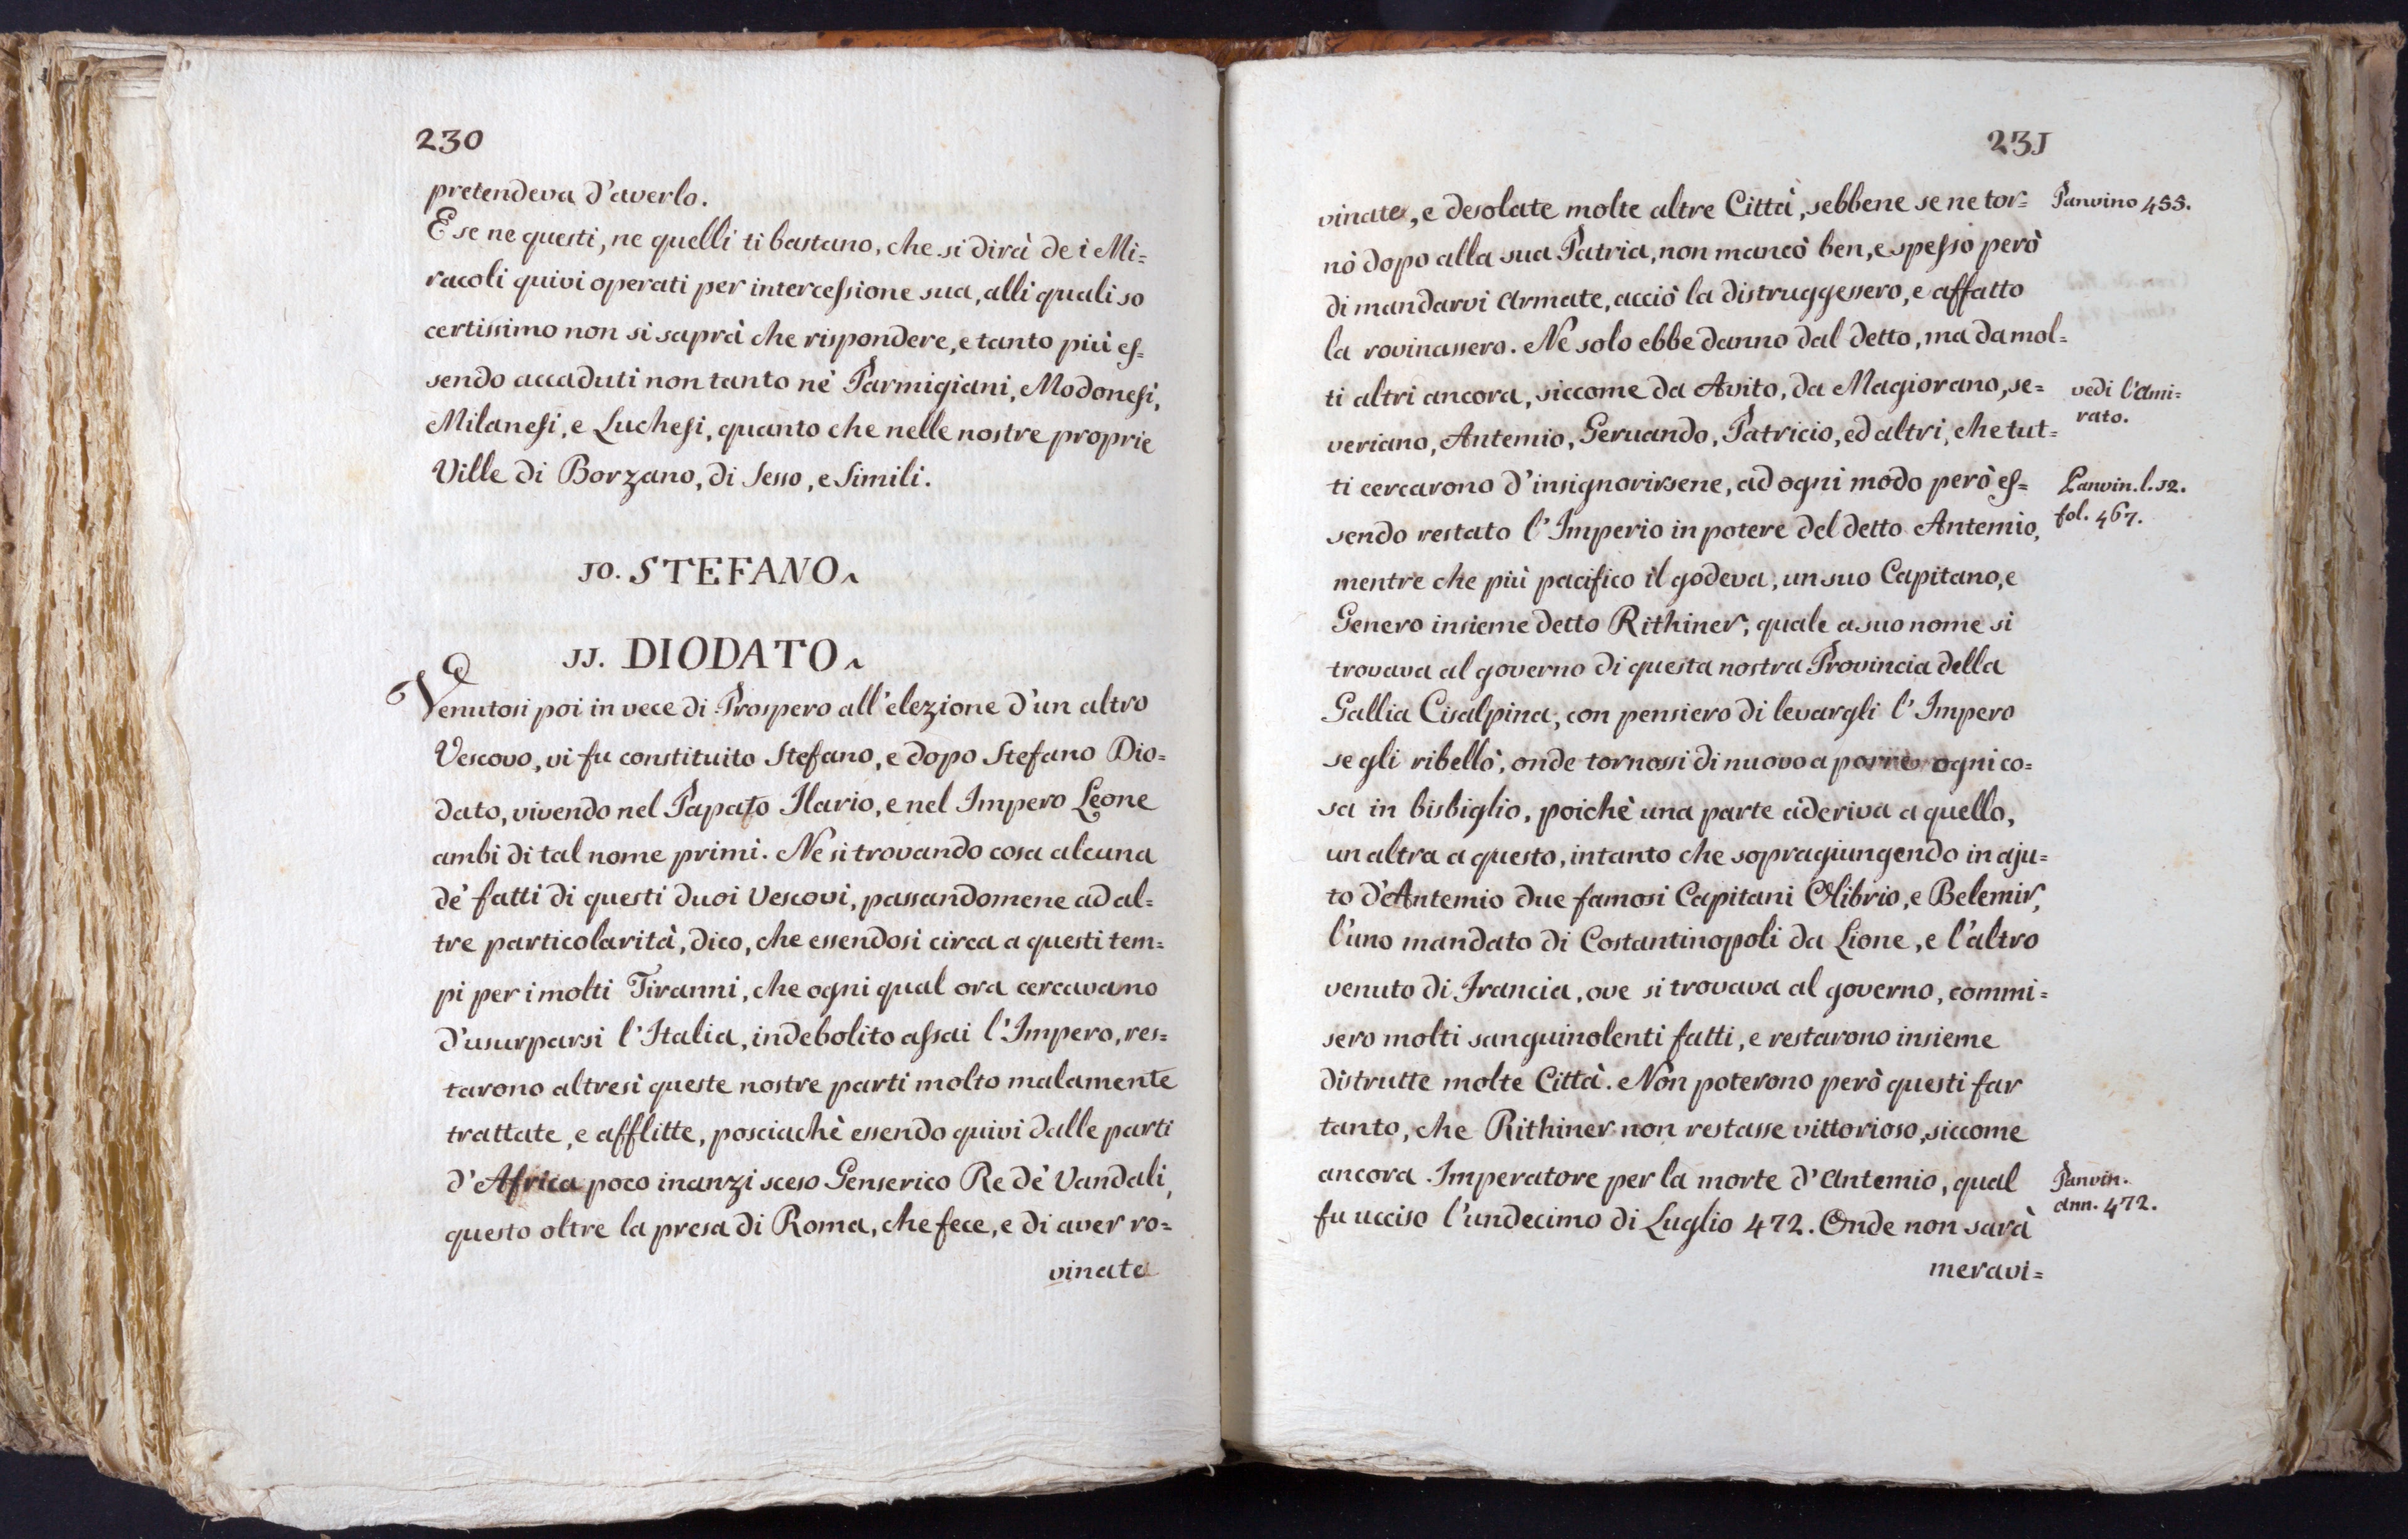 230
pretendeva d'averlo.
E se ne questi, ne quelli ti bastano, che si dirà de i Mi=
racoli quivi operati per intercessione sua, alli quali so
certissimo non si saprà che rispondere, e tanto più es=
sendo accaduti non tanto nè Parmigiani, Modonesi,
Milanesi, e Luchesi, quanto che nelle nostre proprie
Ville di Borzano, di Sesso, e Simili.
10. STEFANO
11. DIODATO
Venutosi poi in vece di Prospero all'elezione d'un altro
Vescovo, vi fu constituito Stefano, e dopo Stefano Dio=
dato, vivendo nel Papato Ilario, e nel Impero Leone
ambi di tal nome primi. Ne si trovando cosa alcuna
dè fatti di questi duoi Vescovi, passandomene ad al=
tre particolarità, dico, che essendosi circa a questi tem=
pi per i molti Tiranni, che ogni qual ora cercavano
d'usurparsi l'Italia, indebolito assai l'Impero, res=
tarono altresì queste nostre parti molto malamente
trattate, e afflitte, posciachè essendo quivi dalle parti
d'Africa poco inanzi sceso Genserico Re dè Vandali,
questo oltre la presa di Roma, che fece, e di aver ro=
vinate
231
vinate, e desolate molte altre Città, sebbene se ne tor=
Panvino 455.
nò dopo alla sua Patria, non mancò ben, e spesso però
di mandarvi Armate, acciò la distruggessero, e affatto
la rovinassero. Ne solo ebbe danno dal detto, ma da mol=
ti altri ancora, siccome da Avito, da Magiorano, se=
vedi l'Ami=
rato.
veriano, Antemio, Geruando, Patricio, ed altri, che tut=
ti cercarono d'insignorirsene, ad ogni modo però es=
Panvin. l. 12.
fol. 467.
sendo restato l'Imperio in potere del detto Antemio,
mentre che più pacifico il godeva, un suo Capitano, e
Genero insieme detto Rithiner, quale a suo nome si
trovava al governo di questa nostra Provincia della
Gallia Cisalpina, con pensiero di levargli l'Impero
se gli ribellò, onde tornossi di nuovo a porre ogni co=
sa in bisbiglio, poichè una parte aderiva a quello,
un altra a questo, intanto che sopragiungendo in aju=
to d'Antemio due famosi Capitani Olibrio, e Belemir,
l'uno mandato di Costantinopoli da Lione, e l'altro
venuto di Francia, ove si trovava al governo, commi=
sero molti sanguinolenti fatti, e restarono insieme
distrutte molte Città. Non poterono però questi far
tanto, che Rithiner non restasse vittorioso, siccome
ancora Imperatore per la morte d'Antemio, qual
Panvin.
Ann. 472.
fu ucciso l'undecimo di Luglio 472. Onde non sarà
meravi=